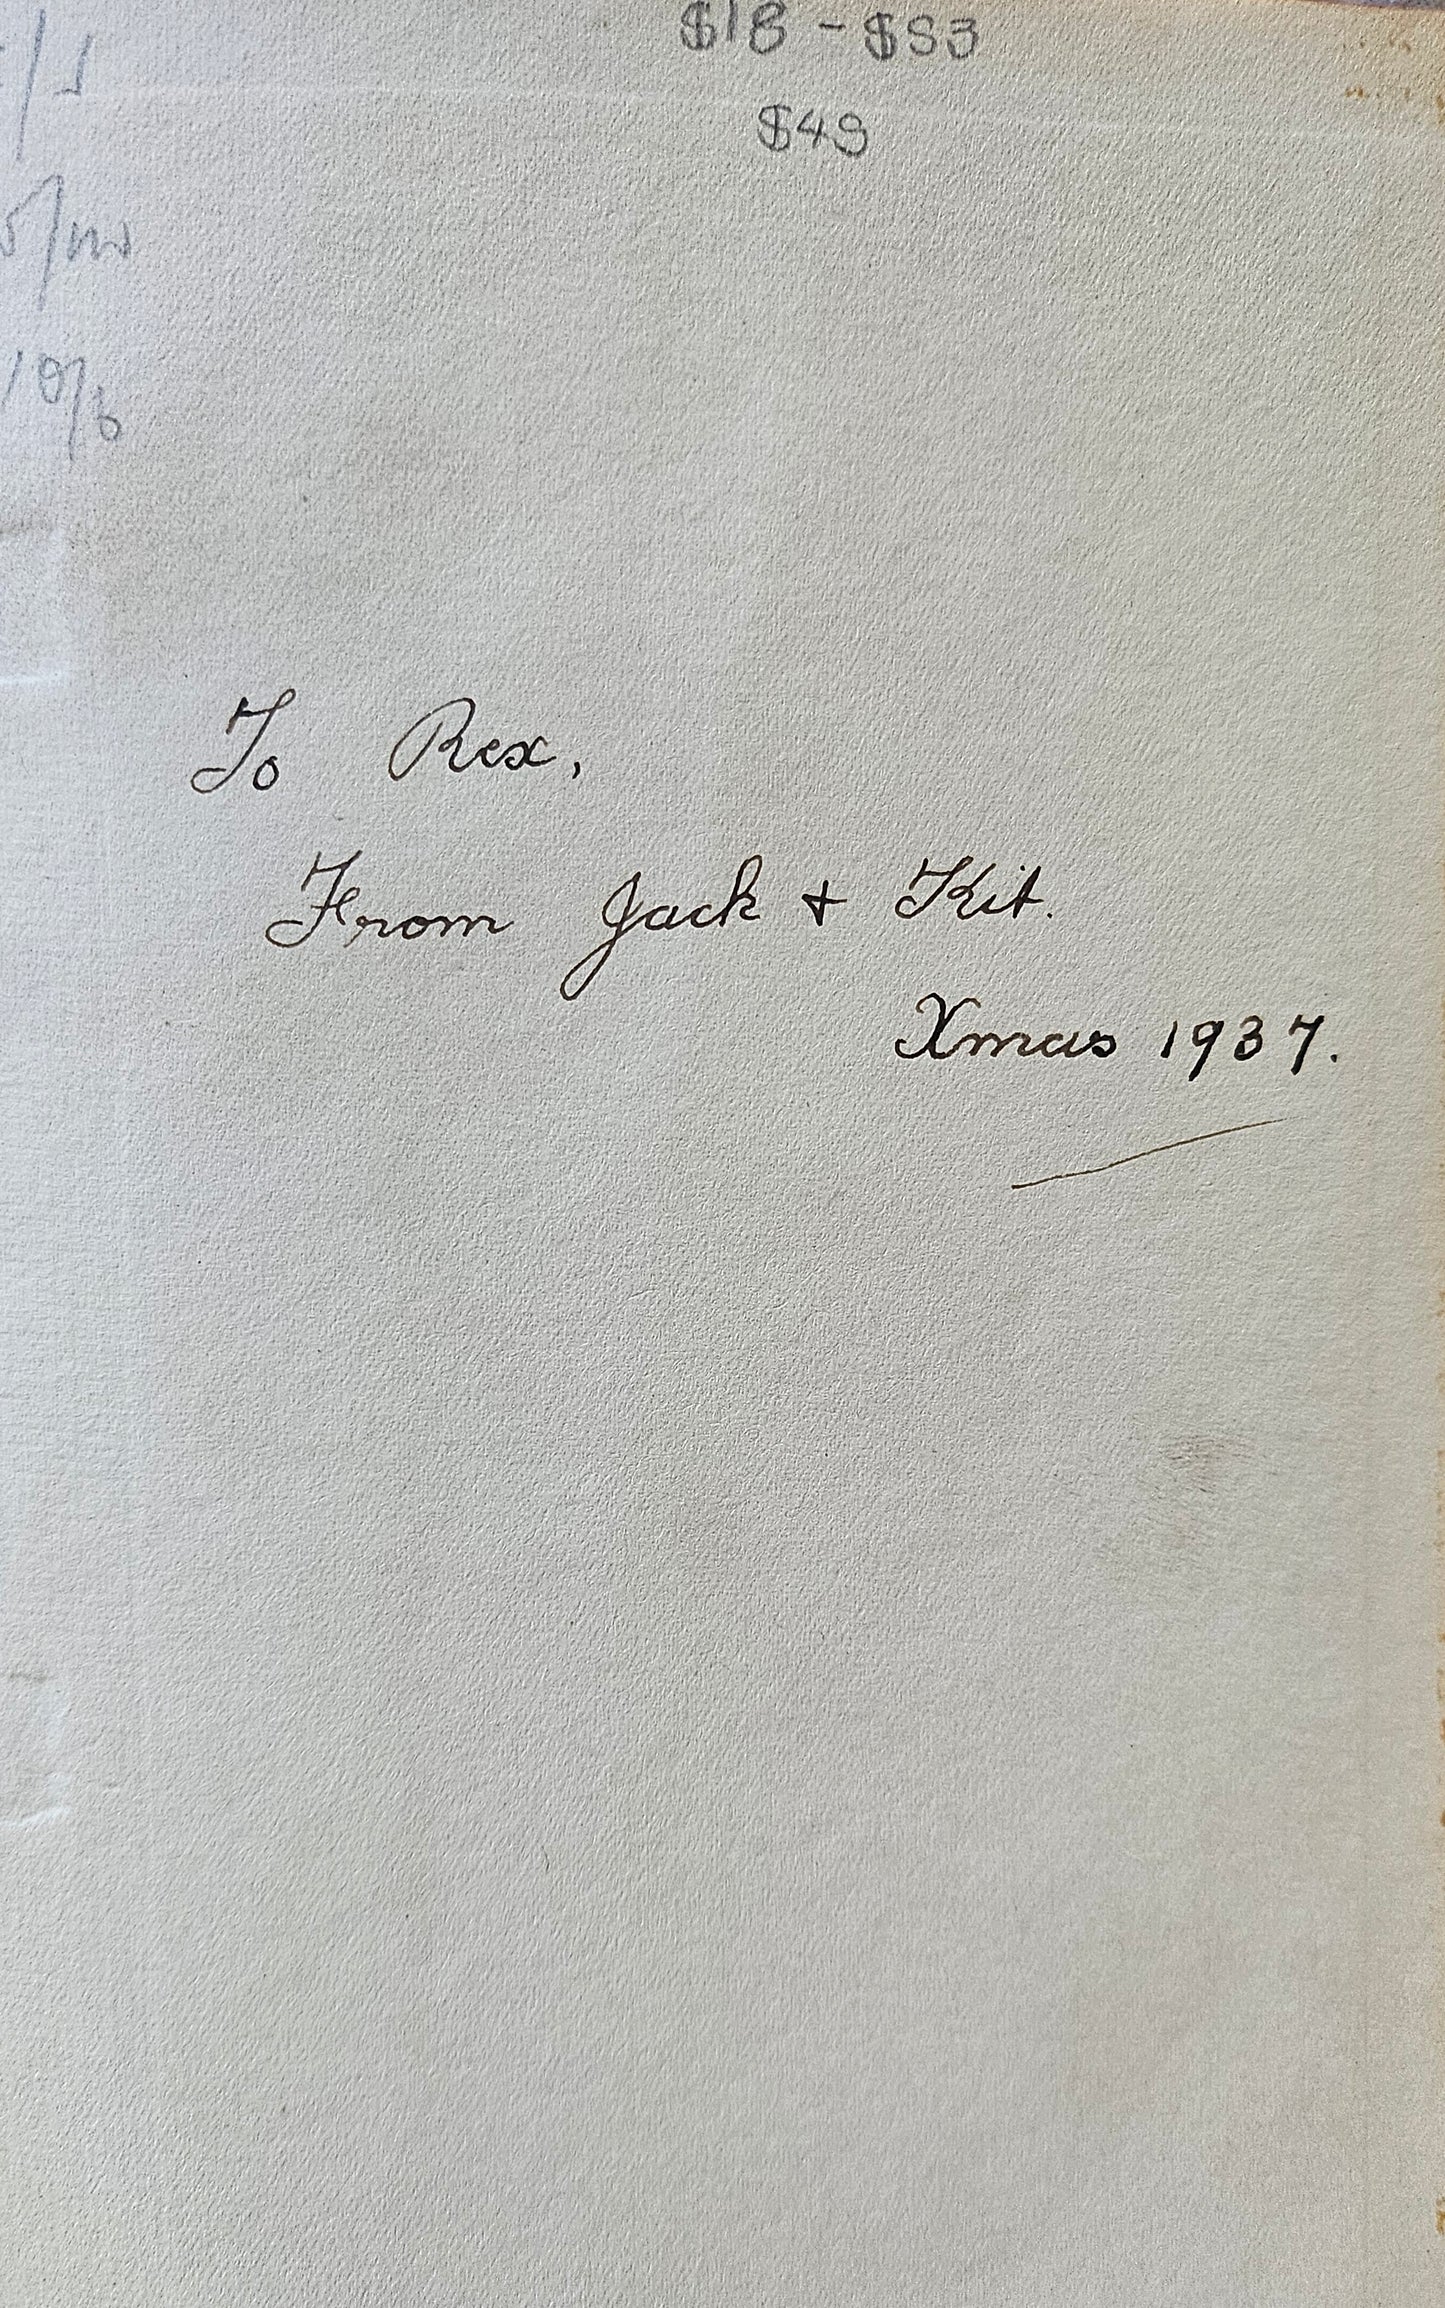 $18 - $53
$49
10/6
To Rex,
From Jack + Kit.
Xmas 1937.